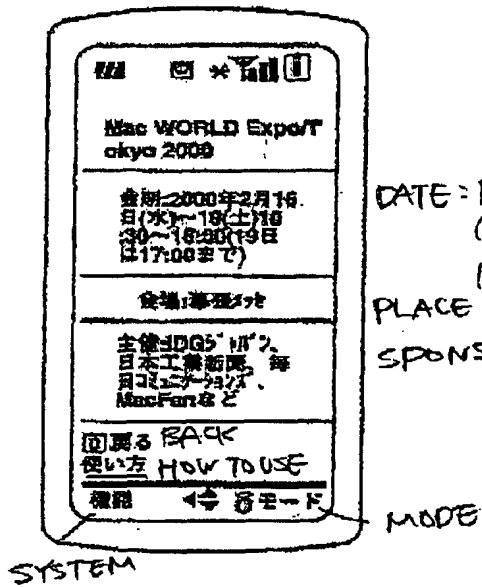 Mac WORLD Expo/T
okyo 2000
会期:2000年2月16
日(水)~19(土)10
:30~18:00(19日
は17:00まで)
会場:幕張メッセ
主催:IDGジャパン、
日本工業新聞、毎
日コミュニケーションズ、
MacFanなど
戻る BACK
使い方 HOW TO USE
モード
DATE:
PLACE
SPONS
MODE
SYSTEM